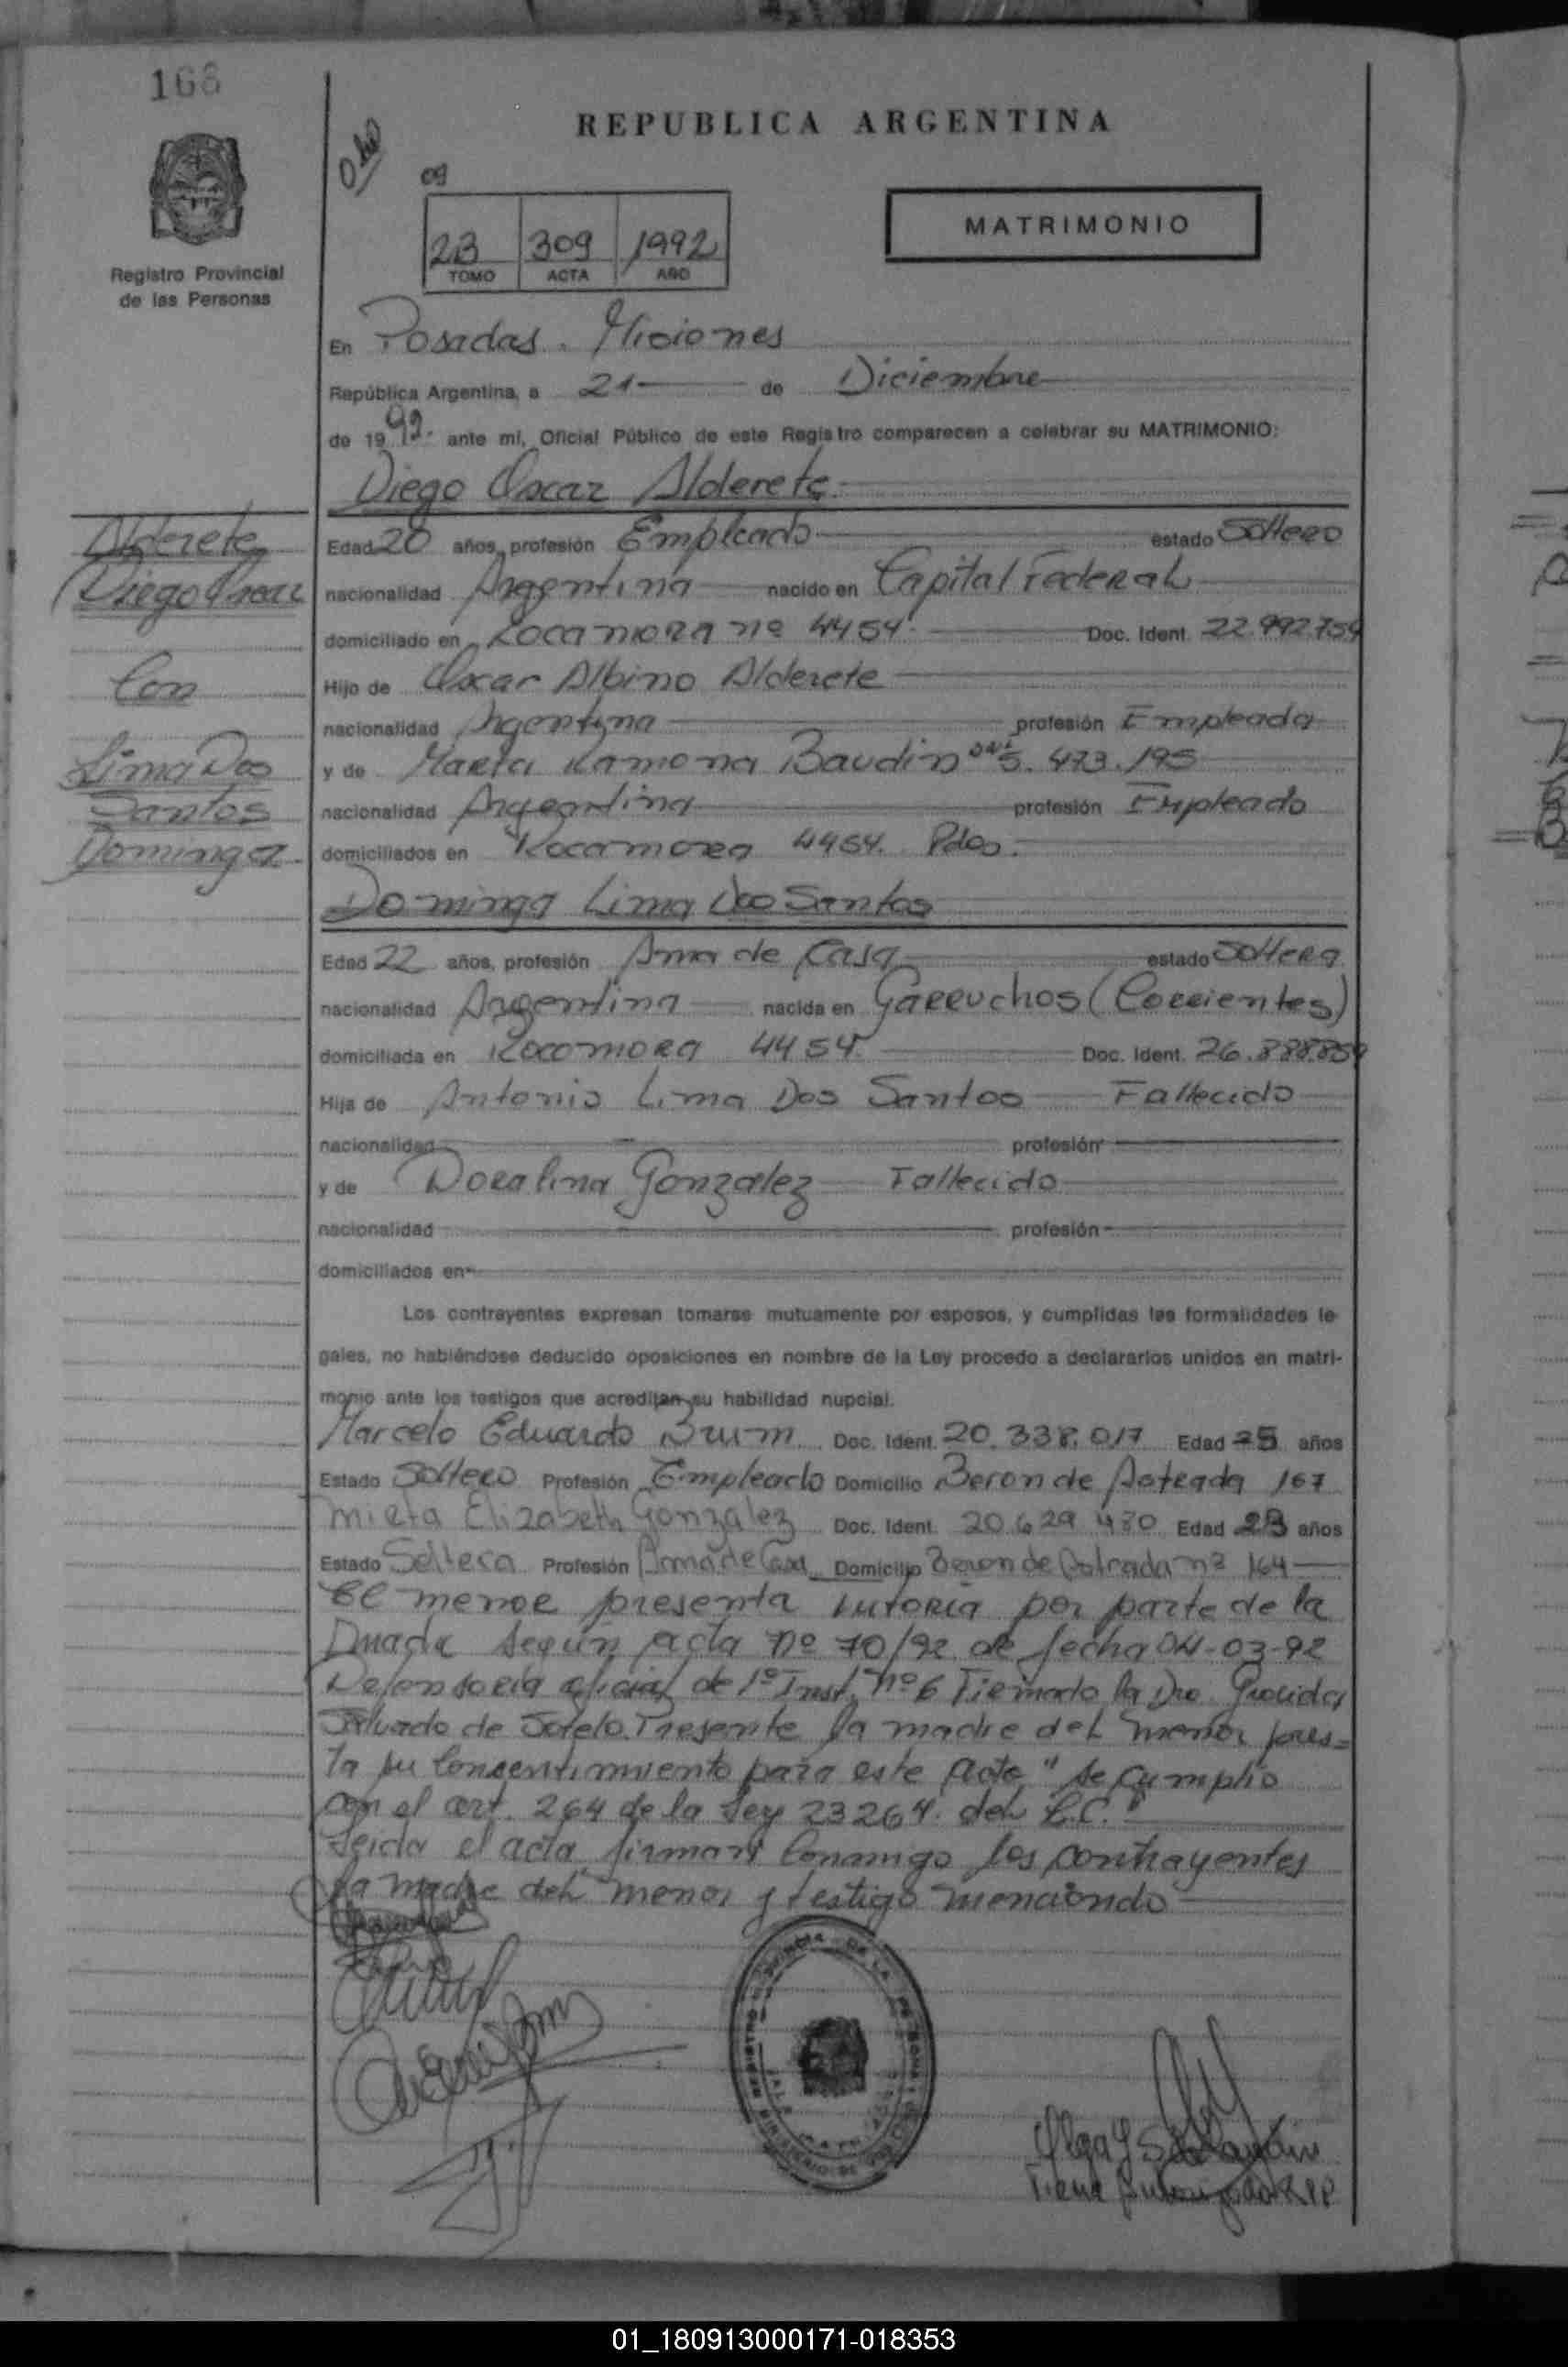 168
REPUBLICA ARGENTINA
09
2B 309 1992
TOMO ACTA AÑO
MATRIMONIO
Registro Provincial
de las Personas
En Posadas. Misiones
República Argentina, a 21 de Diciembre
de 1992. ante mí, Oficial Público de este Registro comparecen a celebrar su MATRIMONIO:
Diego Oscar Alderete
Alderete
Diego Oscar
Con
Lima Dos
Santos
Dominga
Edad 20 años, profesión Empleado estado Soltero
nacionalidad Argentina nacido en Capital Federal
domiciliado en Rocamora nº 4454. Doc. Ident. 22.992.754
Hijo de Oscar Albino Alderete
nacionalidad Argentina profesión Empleada
y de Marta Ramona Baudin DNI 5.473.195
nacionalidad Argentina profesión Empleado
domiciliados en Rocamora 4454. Pdas.
Dominga Lima Dos Santos
Edad 22 años, profesión Ama de Casa estado Soltera
nacionalidad Argentina nacida en Garruchos (Corrientes)
domiciliada en Rocomora 4454. Doc. Ident. 26.888.859
Hija de Antonio Lima Dos Santos Fallecido
nacionalidad profesión
y de Doralina Gonzalez Fallecido
nacionalidad profesión
domiciliados en
Los contrayentes expresan tomarse mutuamente por esposos, y cumplidas las formalidades le-
gales, no habiéndose deducido oposiciones en nombre de la Ley procedo a declararlos unidos en matri-
monio ante los testigos que acreditan su habilidad nupcial.
Marcelo Eduardo Brum Doc. Ident. 20.338.017 Edad 25 años
Estado Soltero Profesión Empleado Domicilio Beron de Astrada 167
Mirta Elizabeth Gonzalez Doc. Ident. 20.629.480 Edad 23 años
Estado Soltera Profesión Ama de Casa Domicilio Beron de Astrada nº 164
El menor presenta tutoria por parte de la
según acta nº 70/92 de fecha 04-03-92
Defensoria oficial de 1º Inst. nº 6 Firmado la Dra.
de Sotelo. Presente la madre del menor pres=
ta su consentimiento para este acto "se cumplio
con el art. 264 de la Ley 23264. del C.C."
Leida el acta firman conmigo los contrayentes
la madre del menor y testigo mencionado
01_180913000171-018353